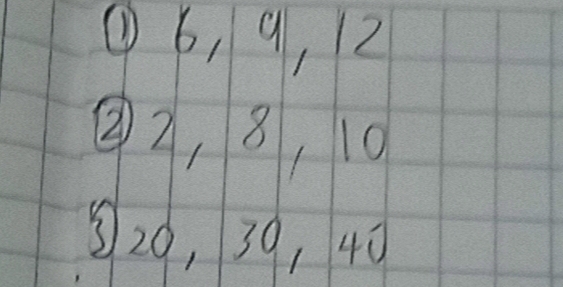 ① 6, 9, 12
② 2, 8, 10
③ 20, 30, 40